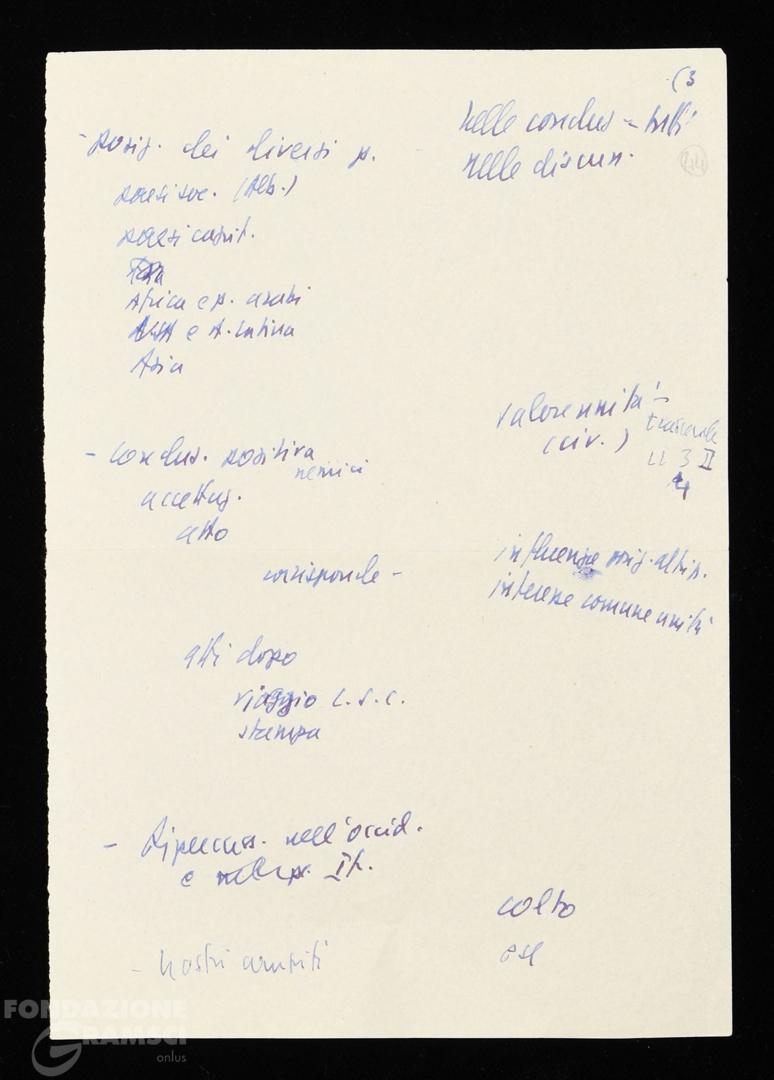 (3
nelle conclus - tutti
- Posiz. dei diversi p.
nelle discuss.
paesi soc. (Alb.)
paesi capit.
Africa e p. arabi
e A. latina
Asia
valore unità -
(civ.)
II
4
- Conclus. positiva
nemici
accettaz.
atto
corrisponde -
influenze posiz. altri p.
interesse comune unità
atti dopo
viaggio L. S. C.
stampa
- Ripercuss. nell'occid.
e nel p. It.
colto
- Nostri compiti
FONDAZIONE
GRAMSCI
onlus